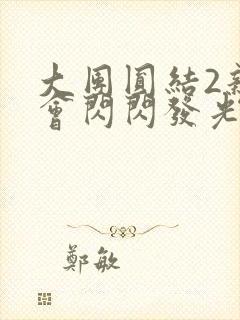 大團圓結2
會閃閃發光
鄭敏